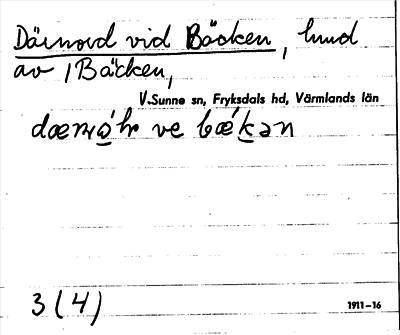 Därnord vid Bäcken, hmd
av /Bäcken,
V. Sunne sn, Fryksdals hd, Värmlands län
ve bǽkən
3 (4)
1911–16